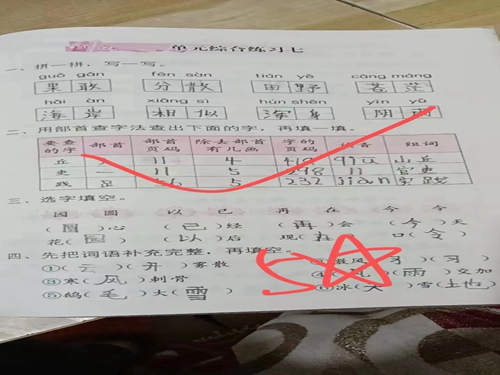 单元综合练习七
一、拼一拼，写一写。
guǒ gǎn fēn sàn tián yě cāng máng
果敢 分散 田野 苍茫
hǎi àn xiāng sì hún shēn yīn yǔ
海岸 相似 浑身 阴雨
二、用部首查字法查出下面的字，再填一填。
要查的字 部首 部首页码 除去部首有几画 字的页码 读音 组词
丘 11 4 qiū 山丘
吏 11 5 官吏
践 足 5 232 jiàn 实践
三、选字填空。
园 圆 以 已 再 在 今 令
(圆)心 (已)经 (再)会 (今)天
花(园) (以)后 现(在) 口(令)
四、先把词语补充完整，再填空。
①(云)(开)雾散 ②微风(习)(习)
③寒(风)刺骨 ④(风)(雨)交加
⑤鹅(毛)大(雪) ⑥冰(天)雪(地)